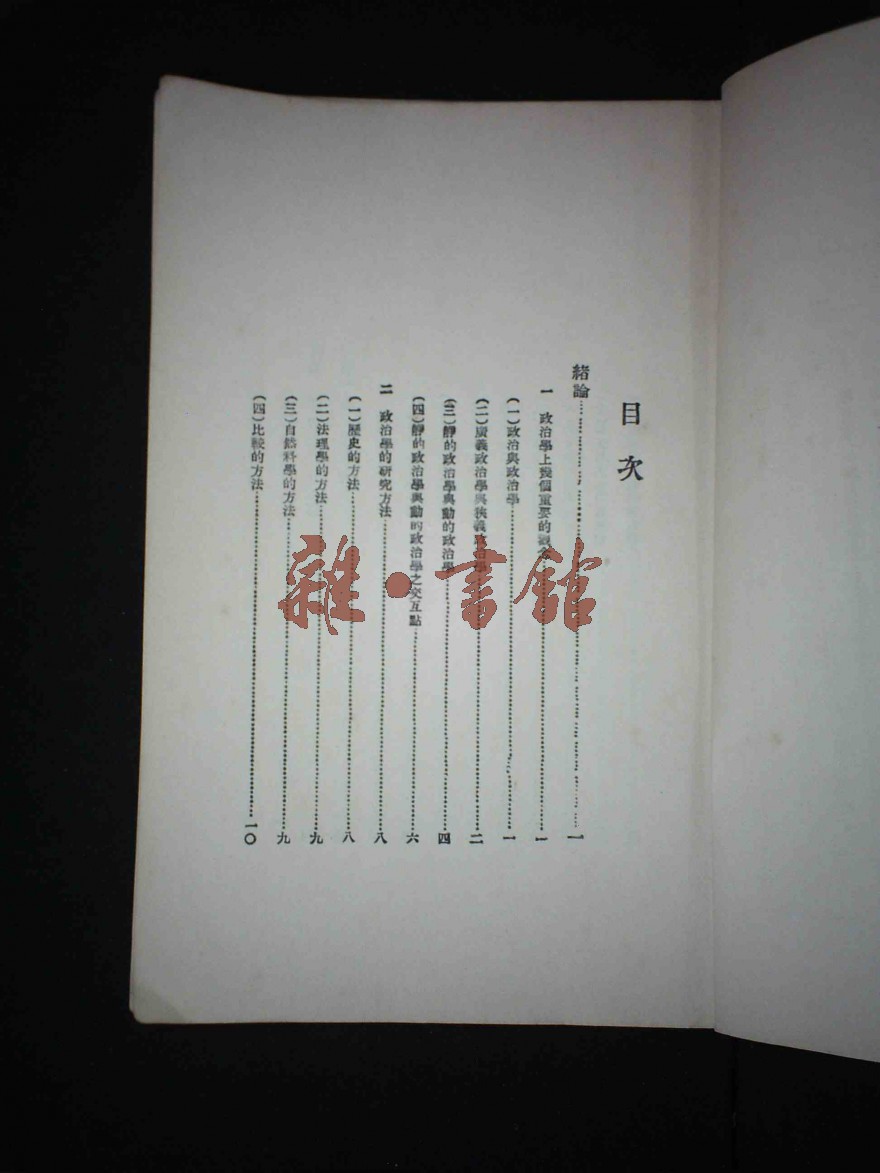 目次
緒論……一
一 政治學上幾個重要的觀念……一
(一)政治與政治學……一
(二)廣義政治學與狹義政治學……二
(三)靜的政治學與動的政治學……四
(四)靜的政治學與動的政治學之交互點……六
二 政治學的研究方法……八
(一)歷史的方法……八
(二)法理學的方法……九
(三)自然科學的方法……九
(四)比較的方法……一〇
雜·書館